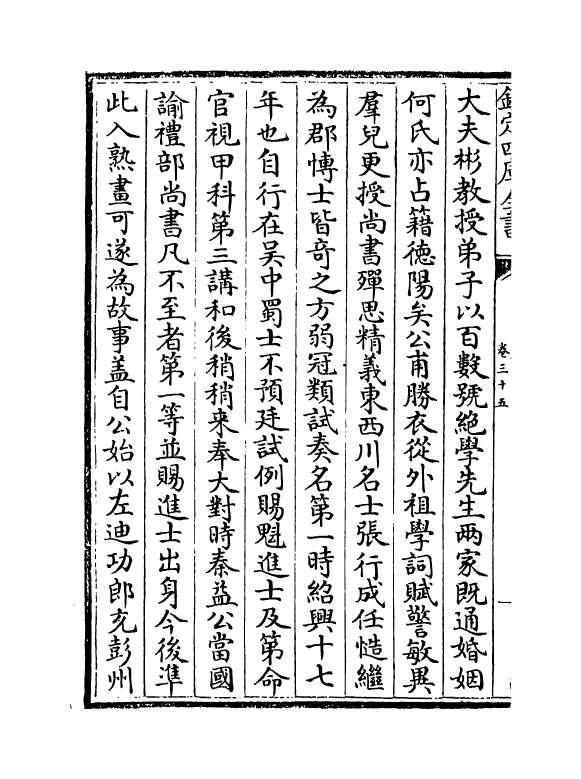 欽定四庫全書
卷三十五
大夫彬教授弟子以百數號絶學先生兩家既通婚姻
何氏亦占籍德陽矣公甫勝衣從外祖學詞賦警敏異
羣兒更授尚書殫思精義東西川名士張行成任慥繼
為郡愽士皆竒之方弱冠類試奏名第一時紹興十七
年也自行在吴中蜀士不預廷試例賜魁進士及第命
官視甲科第三講和後稍稍来奉大對時秦益公當國
諭禮部尚書凡不至者第一等並賜進士出身今後準
此入熟畫可遂為故事盖自公始以左迪功郎充彭州